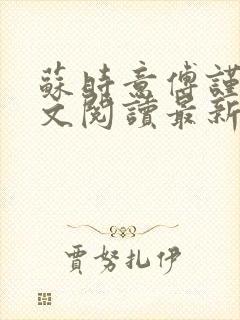 蘇時意傅謹
文閱讀最新
賈努扎伊